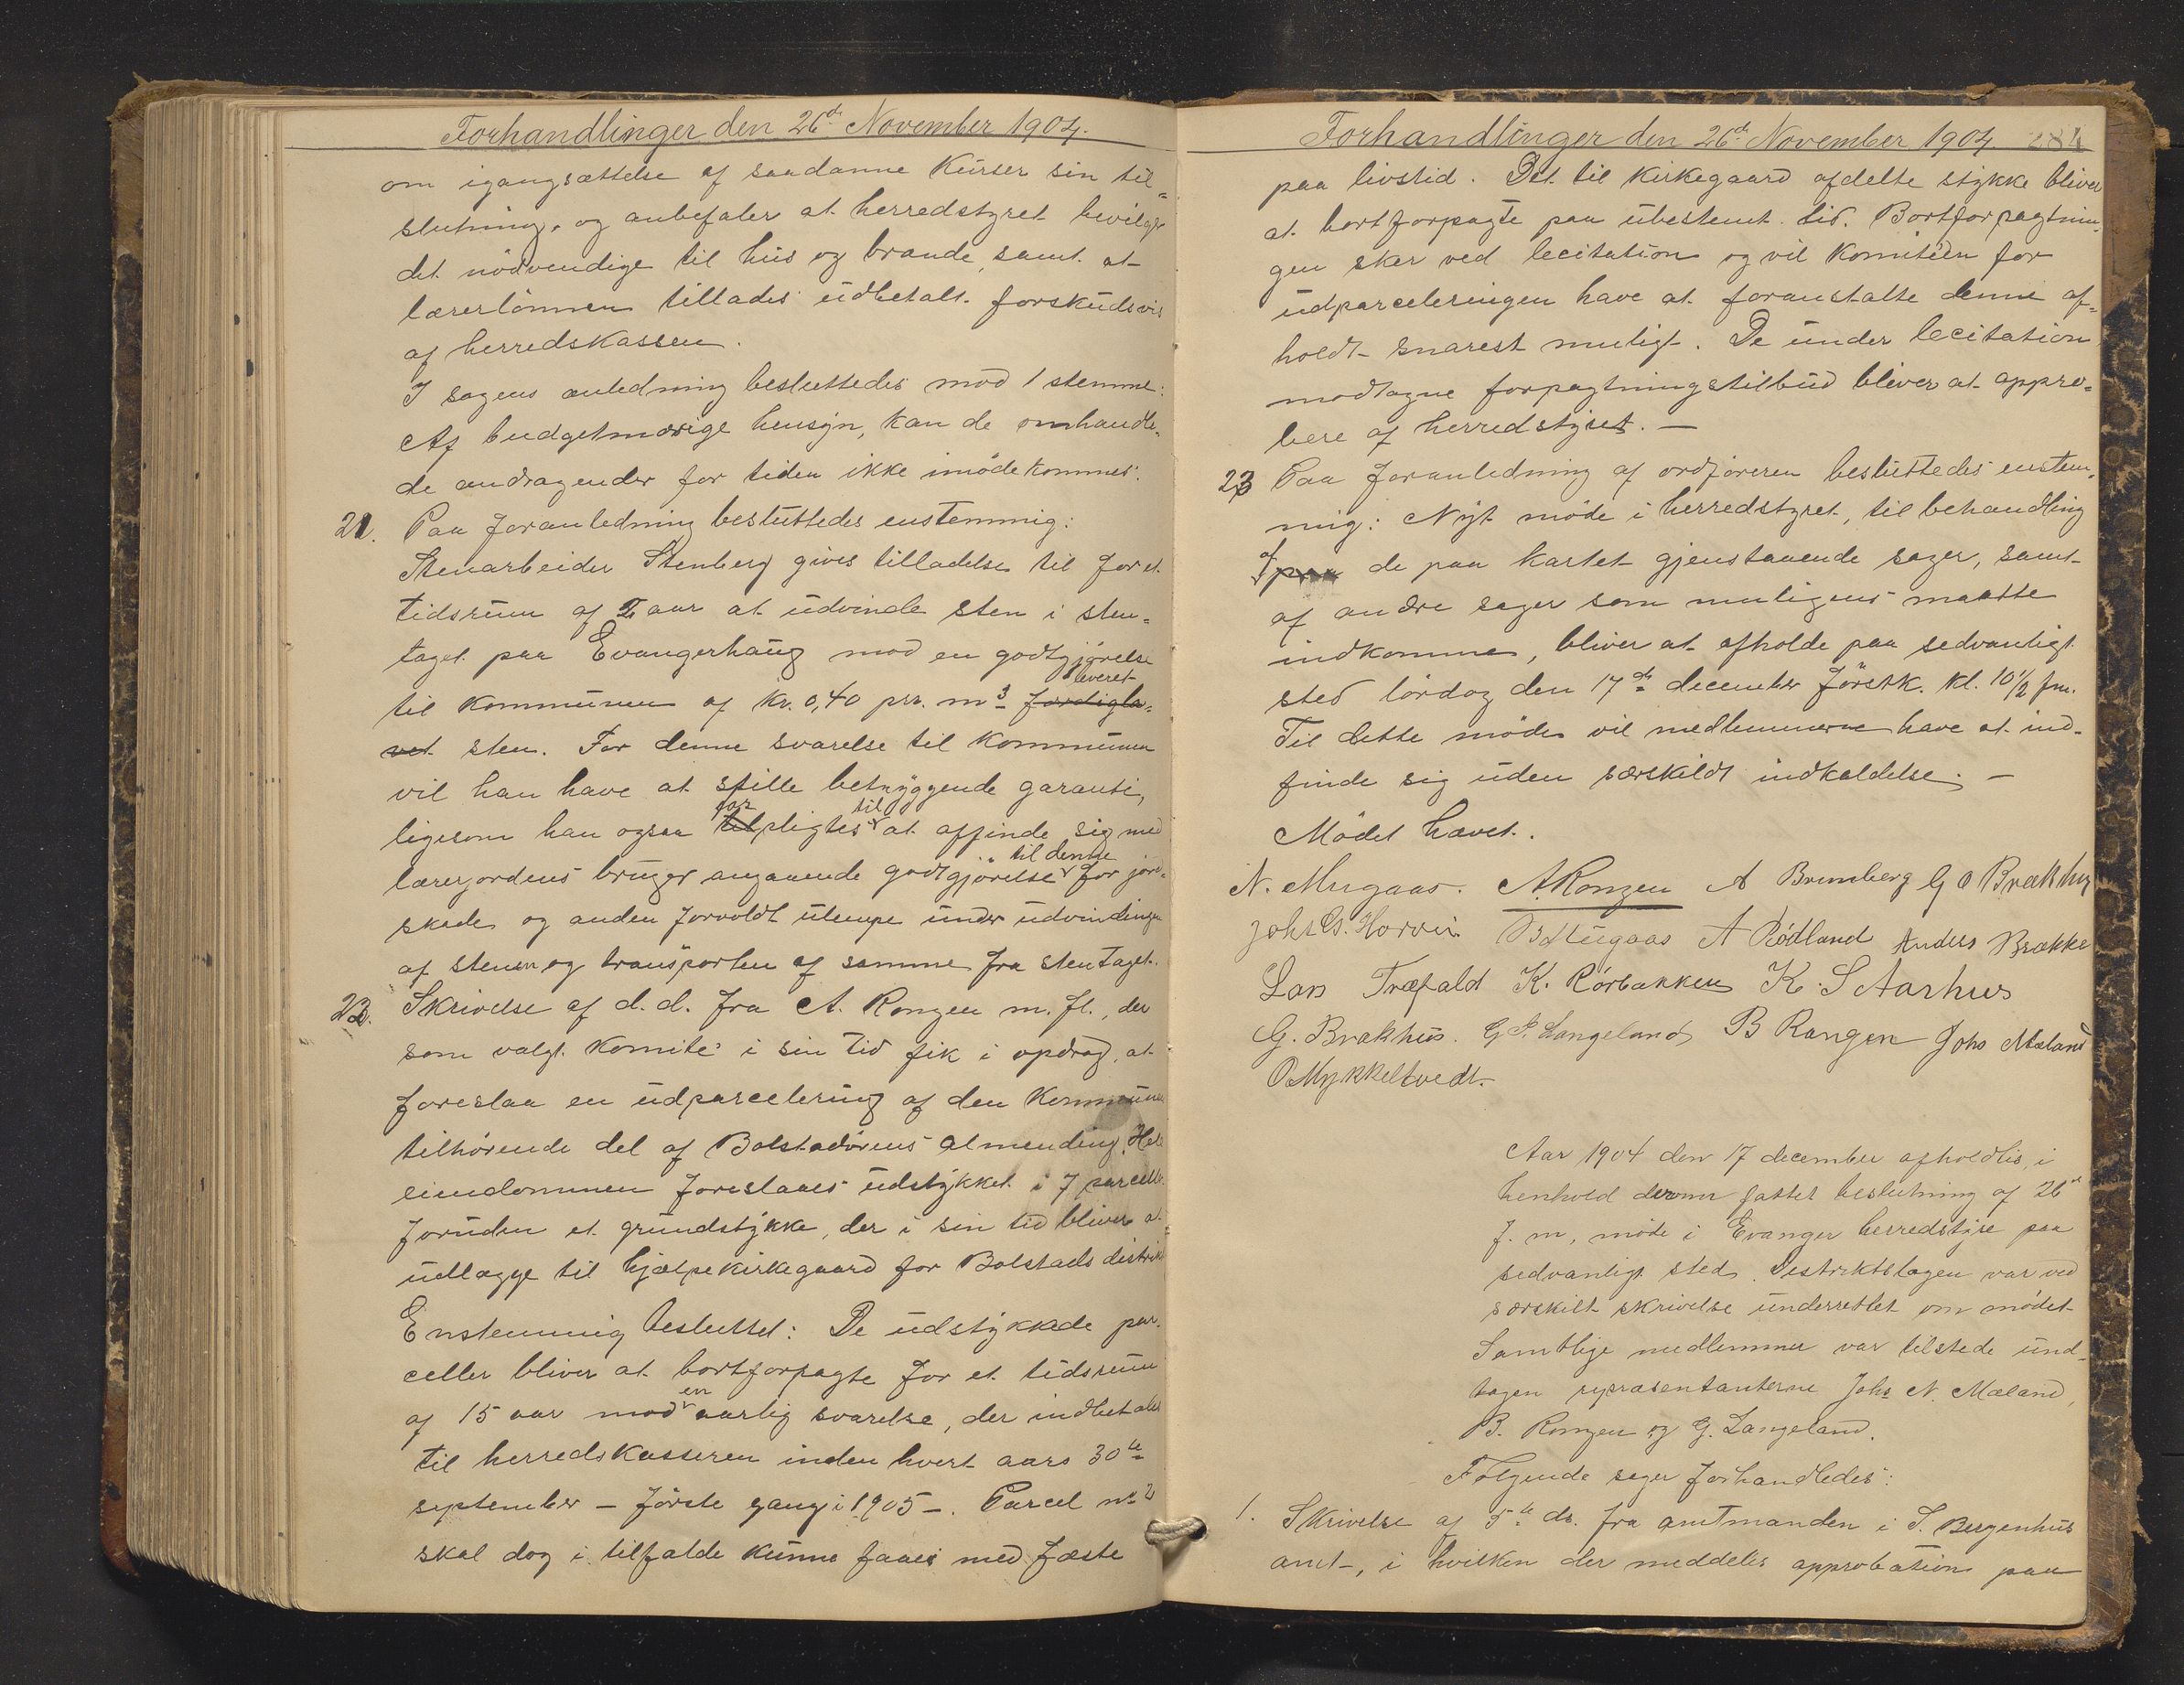 Forhandlinger den 26de November 1904.
om igangsættelse af saadanne kurser sin til=
slutning, og anbefaler at herredstyret bevilger
det nödvendige til hus og brænde, samt at
lærerlönnen tillades udbetalt forskudsvis
af herredskassen.
I sagens anledning besluttedes mod 1 stemme:
Af budgetmæssige hensyn, kan de omhandle-
de andragender for tiden ikke imödekommes.
21. Paa foranledning besluttedes enstemmig:
Stenarbeider Stenberg gives tilladelse til for et
tidsrum af 2 aar at udvinde sten i sten=
taget paa Evangerhaug mod en godtgjörelse
leveret
til kommunen af kr. 0,40 pr. m3 færdigla=
vet sten. For denne svarelse til kommunen
vil han have at stille betryggende garanti,
for til
ligesom han ogsaa tilpligtes at affinde sig med
til denne
lærerjordens bruger angaaende godtgjörelse for jord-
skade og anden forvoldt ulempe under udvindingen
af stenen og transporten af samme fra stentaget.
22. Skrivelse af d.d. fra A. Rongen m. fl., der
som valgt komite i sin tid fik i opdrag, at
foreslaa en udparcelering af den kommunen
tilhörende del af Bolstadörens almending. Hele
eiendommen foreslaaes udstykket i 7 parceller
foruden et grundstykke, der i sin tid bliver at
udlægge til hjælpekirkegaard for Bolstads distrikt
Enstemmig besluttet: De udstykkede par-
celler bliver at bortforpagte for et tidsrum
en
af 15 aar mod aarlig svarelse, der indbetales
til herredskasseren inden hvert aars 30te
september – förste gang i 1905 –. Parcel no 2
skal dog i tilfælde kunne faaes med fæste
Forhandlinger den 26de November 1904 284
paa livstid. Det til kirkegaard afdelte stykke bliver
at bortforpagte paa ubestemt tid. Bortforpagtnin-
gen sker ved lecitation og vil komitéen for
udparceleringen have at foranstalte denne af=
holdt snarest muligt. De under lecitation
modtagne forpagtningstilbud bliver at appro=
bere af herredstyret. –
23 Paa foranledning af ordföreren besluttedes enstem-
mig: Nyt möde i herredstyret, til behandling
af paa de paa kartet gjenstaaende sager, samt
af andre sager som muligens maatte
indkomme, bliver at afholde paa sedvanligt
sted lördag den 17de december förstk. kl. 10 1/2 fm.
Til dette möde vil medlemmerne have at ind-
finde sig uden særskildt indkaldelse. –
Mödet hævet.
N. Mugaas. A Rongen A Brunberg G O Brækhus
Johs G. Horvei B Mugaas A Rödland Anders Brække
Lars Træfald K. Rörbakken K. S Aarhus
G. Brækhus. G P. Langeland B Rongen Johs Mæland
O Mykkeltvedt.
Aar 1904 den 17 december afholdtes, i
henhold derom fattet beslutning af 26de
f. m., möde i Evanger herredstyre paa
sedvanligt sted. Distriktslægen var ved
særskilt skrivelse underrettet om mödet
Samtlige medlemmer var tilstede und-
tagen repræsentanterne Johs N. Mæland,
B. Rongen og G. Langeland.
Fölgende sager forhandledes:
1. Skrivelse af 5te ds. fra amtmanden i S. Bergenhus
amt, i hvilken der meddeles approbation paa